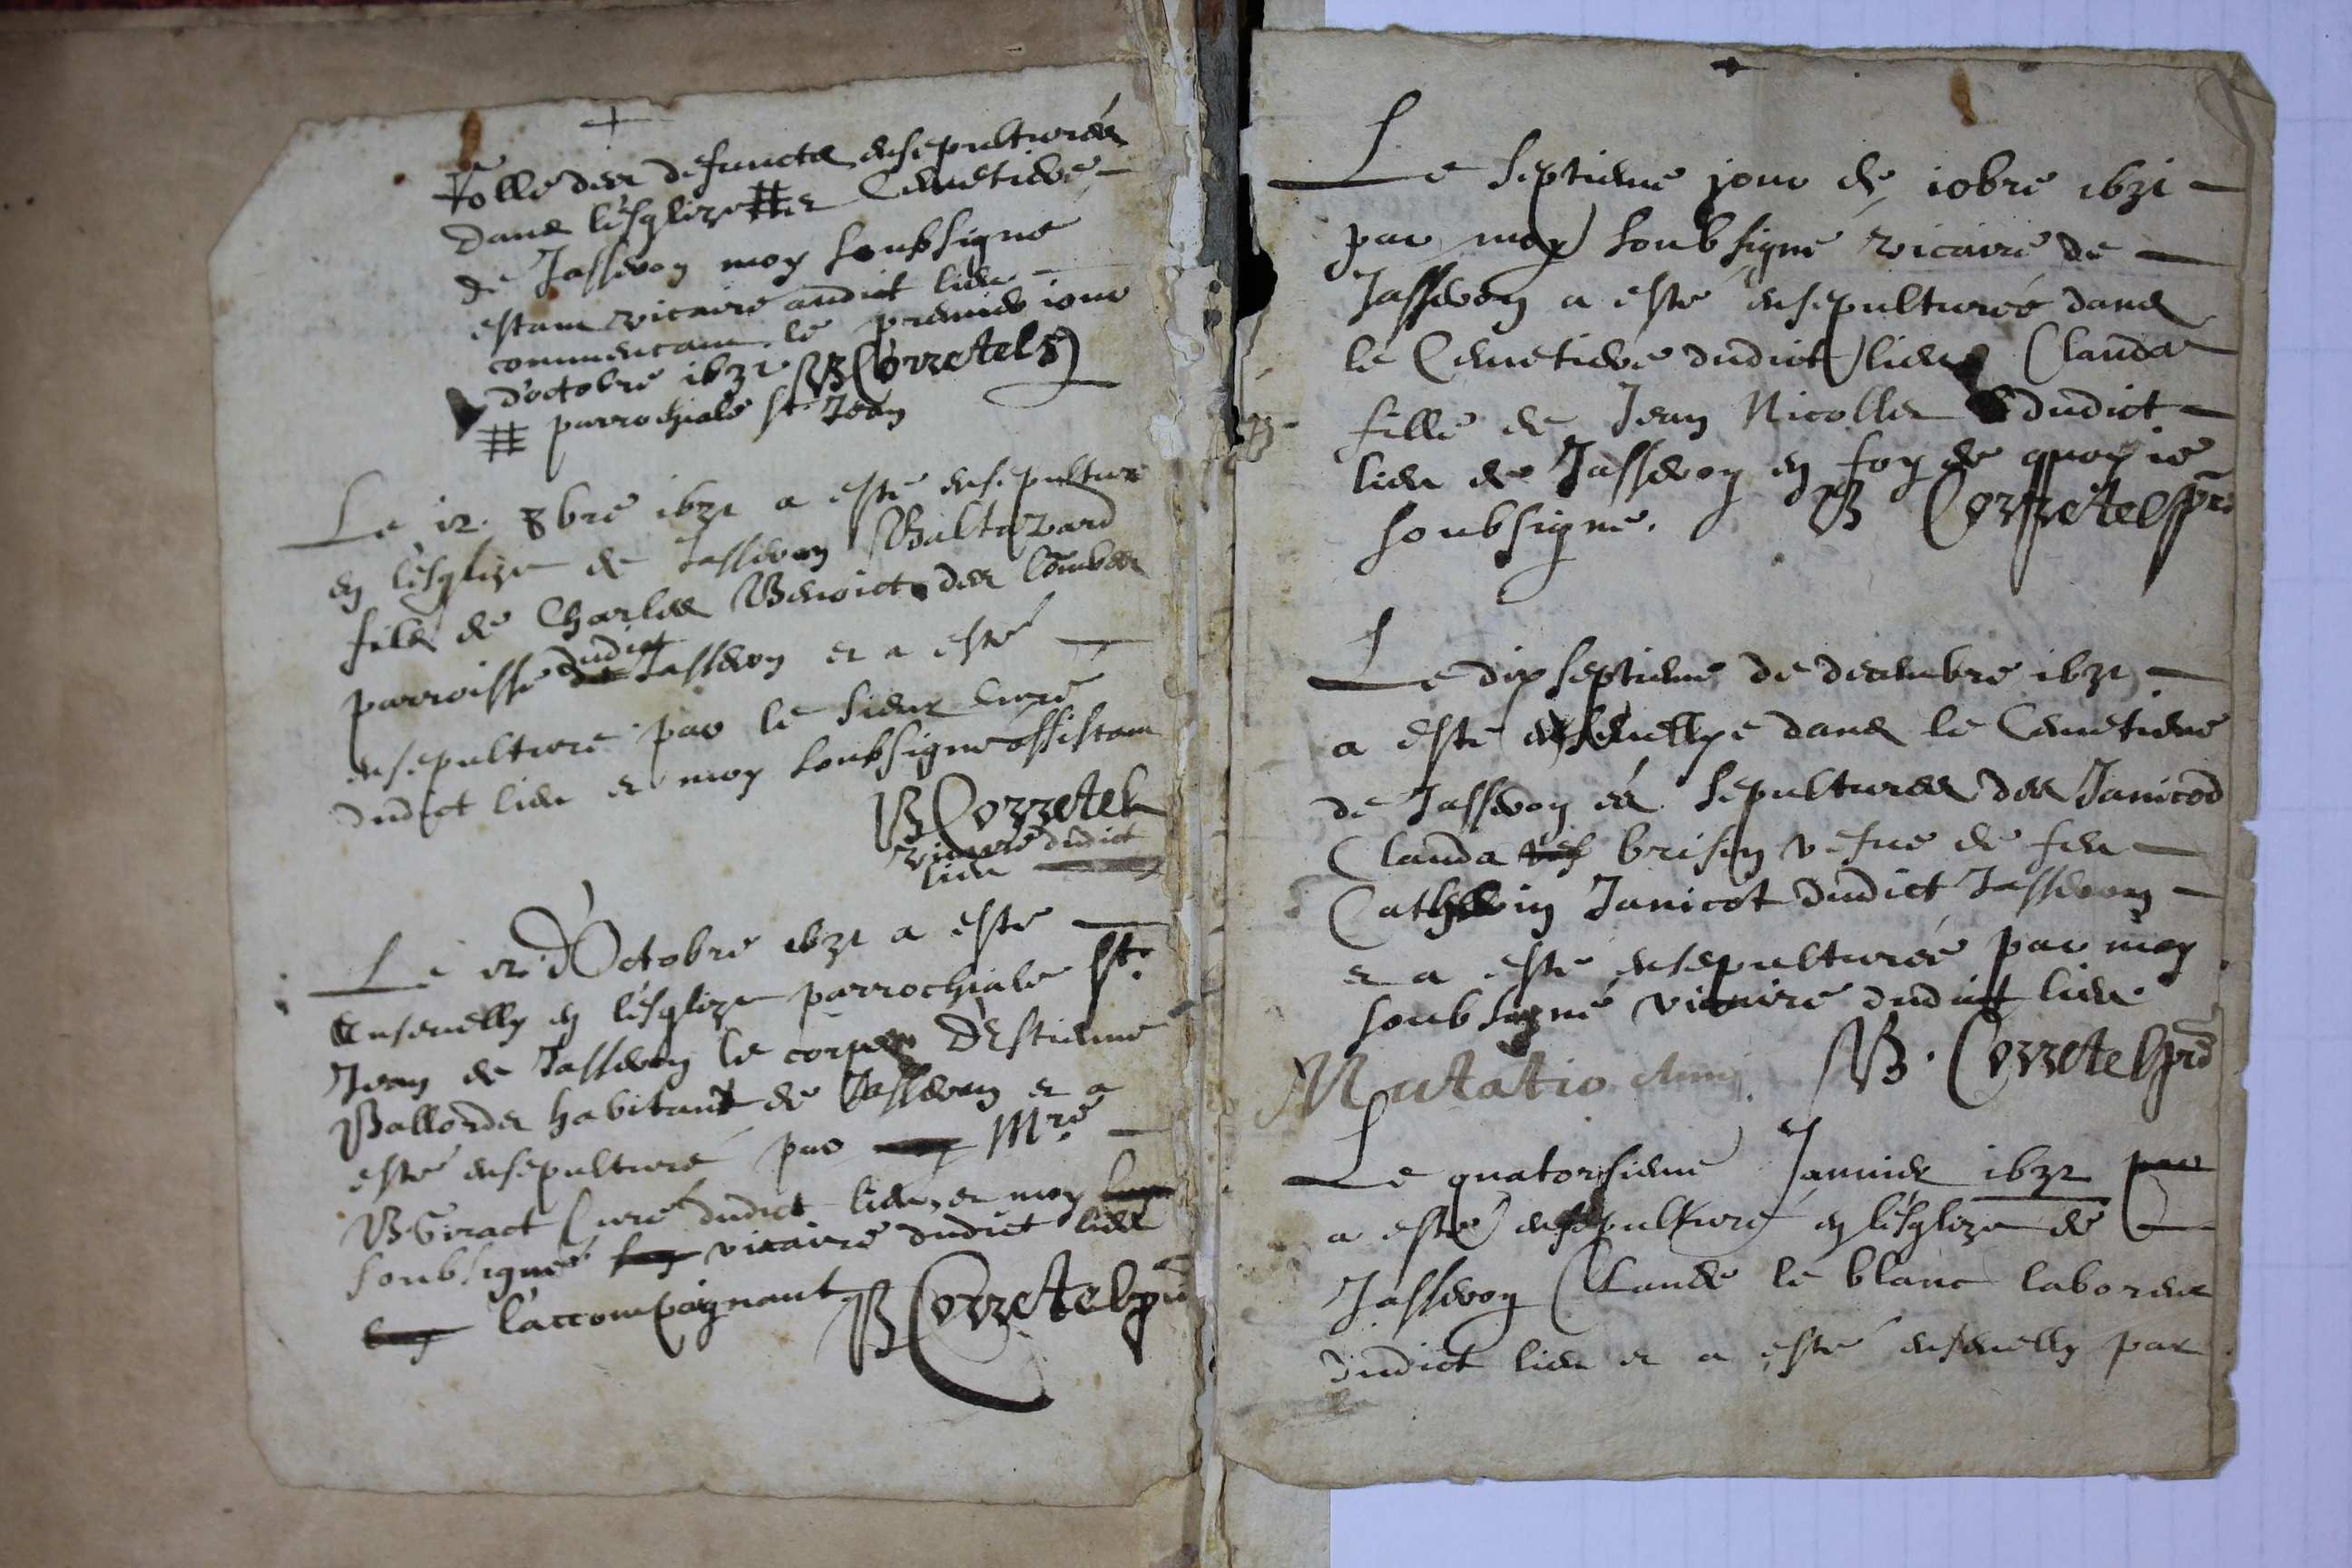 +
Rolle des defuncts ensepulturés
dans l'esglize # et Cemetiere
de Jasseron moy soubsigné
estant vicaire audict lieu
commencant le premier iour
d'octobre 1631 B Corretel
# parrochiale St Jean
Le 12. 8bre 1631 a esté ensepulturé
en l'esglize de Jasseron Baltazard
filz de Charles Benoict des Combes
parroisse dudict Jasseron et a esté
ensepulturé par le sieur curé
dudict lieu et moy soubsigné assistant
B Corretel
vicaire dudict
lieu
Le 12 d'Octobre 1631 a esté
Ensevelly en l'esglize parrochiale St.
Jean de Jasseron le corps d'Estienne
Ballondet habitant de Jasseron et a
esté ensepulturé par Mre
B Giract Curé dudict lieu, et moy
soubsigné vicaire dudict lieu
l'accompaignant B Corretel
+
Le septieme jour de 10bre 1631
par moy soubsigné vicaire de
Jasseron a esté ensepulturée dans
le Cemetiere dudict lieu Clauda
fille de Jean Nicollet dudict
lieu de Jasseron en foy de quoy ie
soubsigne. B Corretel pre
Le dix septieme de decembre 1631
a esté ensevellye dans le Cemetiere
de Jasseron és sepultures des Janicod
Clauda brisen vefue de feu
Catherin Janicot dudict Jasseron
et a esté ensepulturée par moy
soubsigné vicaire dudict lieu
Mutatio Anni B. Corretel pre
Le quatorsieme Januier 1632 par
a esté ensepulturé en l'esglize de
Jasseron Claude le blanc laboreur
dudict lieu et a esté ensevelly par